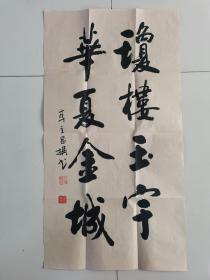 瓊樓玉宇
華夏金城